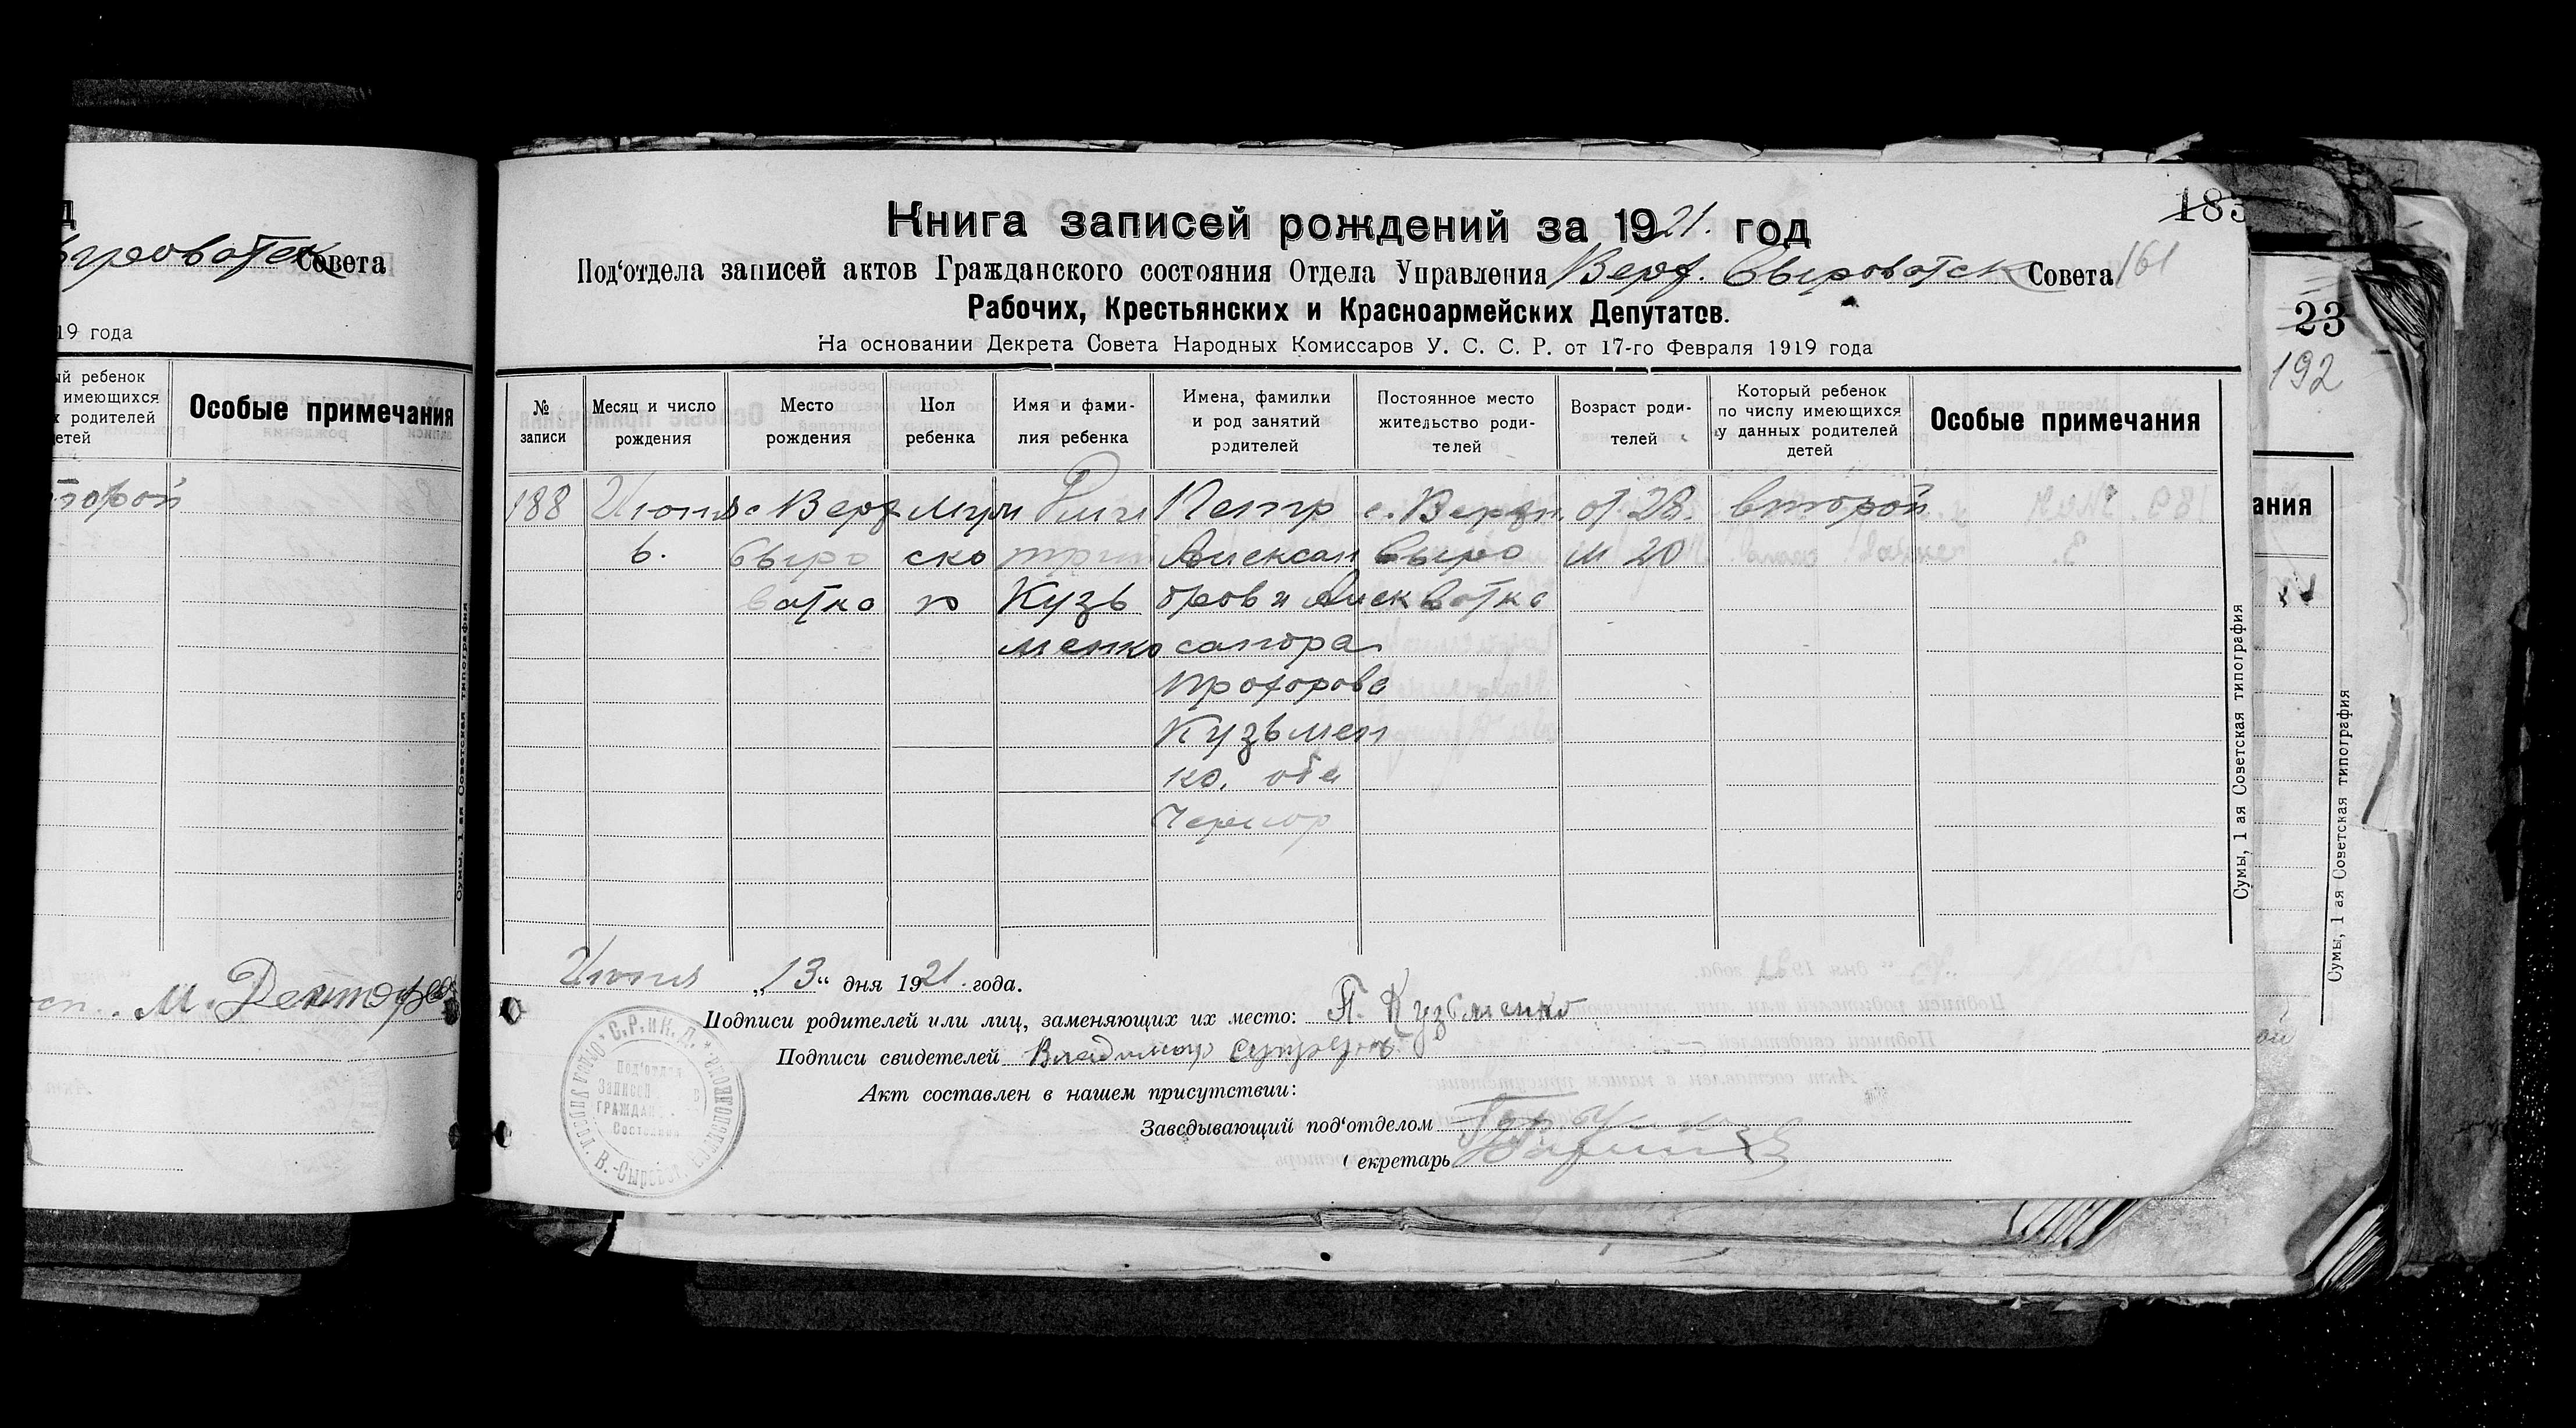 Сыроватск Совета
19 года
ый ребенок
имеющихся
х родителей
детей
Особые примечания
второй
М.
Сумы, 1 ая Советская типография
183
Книга записей рождений за 1921. год
Под‘отдела записей актов Гражданского состояния Отдела Управления Верх. Сыроватск Совета 161
Рабочих, Крестьянских и Красноармейских Депутатов.
На основании Декрета Совета Народных Комиссаров У. С. С. Р. от 17-го Февраля 1919 года
№ записи
Месяц и число рождения
Место рождения
Пол ребенка
Имя и фами-
лия ребенка
Имена, фамилии
и род занятий
родителей
Постоянное место
жительство роди-
телей
Возраст роди-
телей
Который ребенок
по числу имеющихся
у данных родителей
детей
Особые примечания
188
Июня
6.
с Верх
Сыро
ватко
муж
ско
го
Дми
трий
Кузь
менко
Петр
Алексан
дров и Алек
сандра
Прохорова
Кузьмен
ко. оба
с. Верхн.
Сыро
ватко
от 28.
м 20
второй
Июня „13“ дня 1921. года.
Подписи родителей или лиц, заменяющих их место: П. Кузьменко
Подписи свидетелей Владимир
Акт составлен в нашем присутствии:
Заведывающий под‘отделом
Секретарь
С.Р. и К. Д.
Под‘отдел
Записей
Граждан
Состояния
В.-Сыроват.
Сумы, 1 ая Советская типография
23
192
ания
Сумы, 1 ая Советская типография